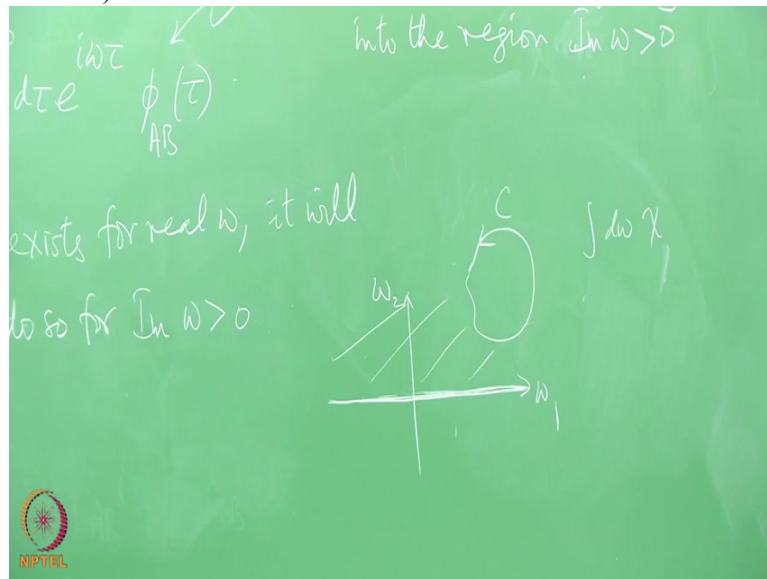 into the region Im ω > 0
dτ e^{iωτ} ϕ_{AB}(τ)
exists for real ω, it will
do so for Im ω > 0
C
∫ dω χ
ω₂
ω₁
NPTEL